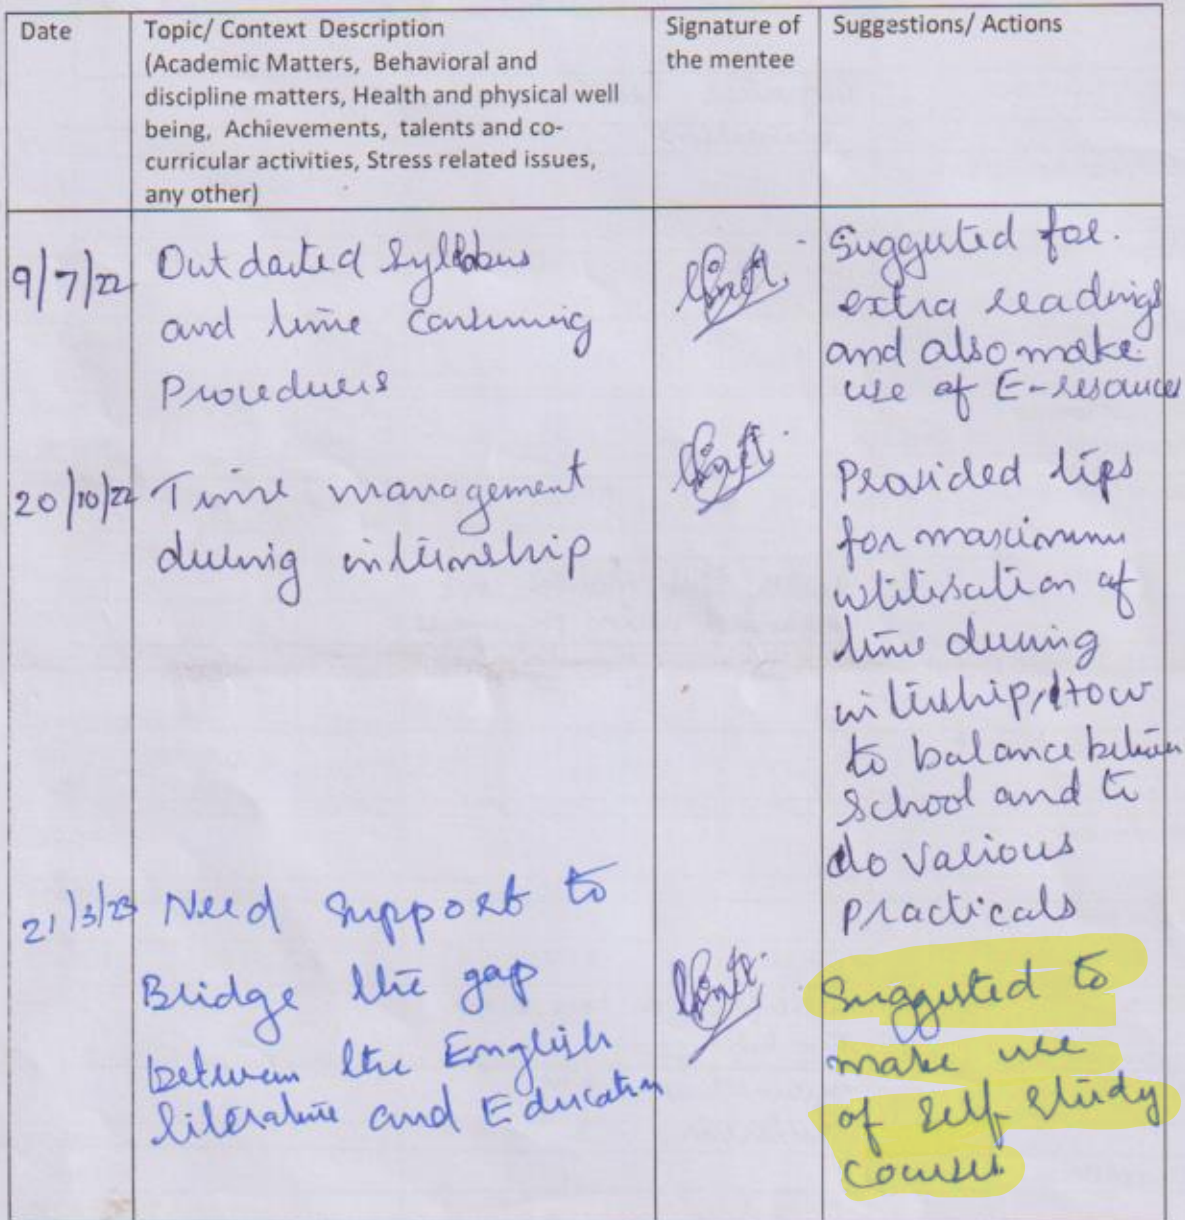 Date
Topic/ Context Description
(Academic Matters, Behavioral and
discipline matters, Health and physical well
being, Achievements, talents and co-
curricular activities, Stress related issues,
any other)
Signature of
the mentee
Suggestions/ Actions
9/7/22
Outdated Syllabus
and time
Procedures
Suggested for
extra readings
and also make
use of E-resources
20/10/22
Time management
during internship
Provided tips
for maximum
utilisation of
time during
intership, How
to balance between
School and to
do various
practicals
21/3/23
Need Support to
Bridge the gap
between the English
literature and Education
Suggested to
make use
of Self Study
courses